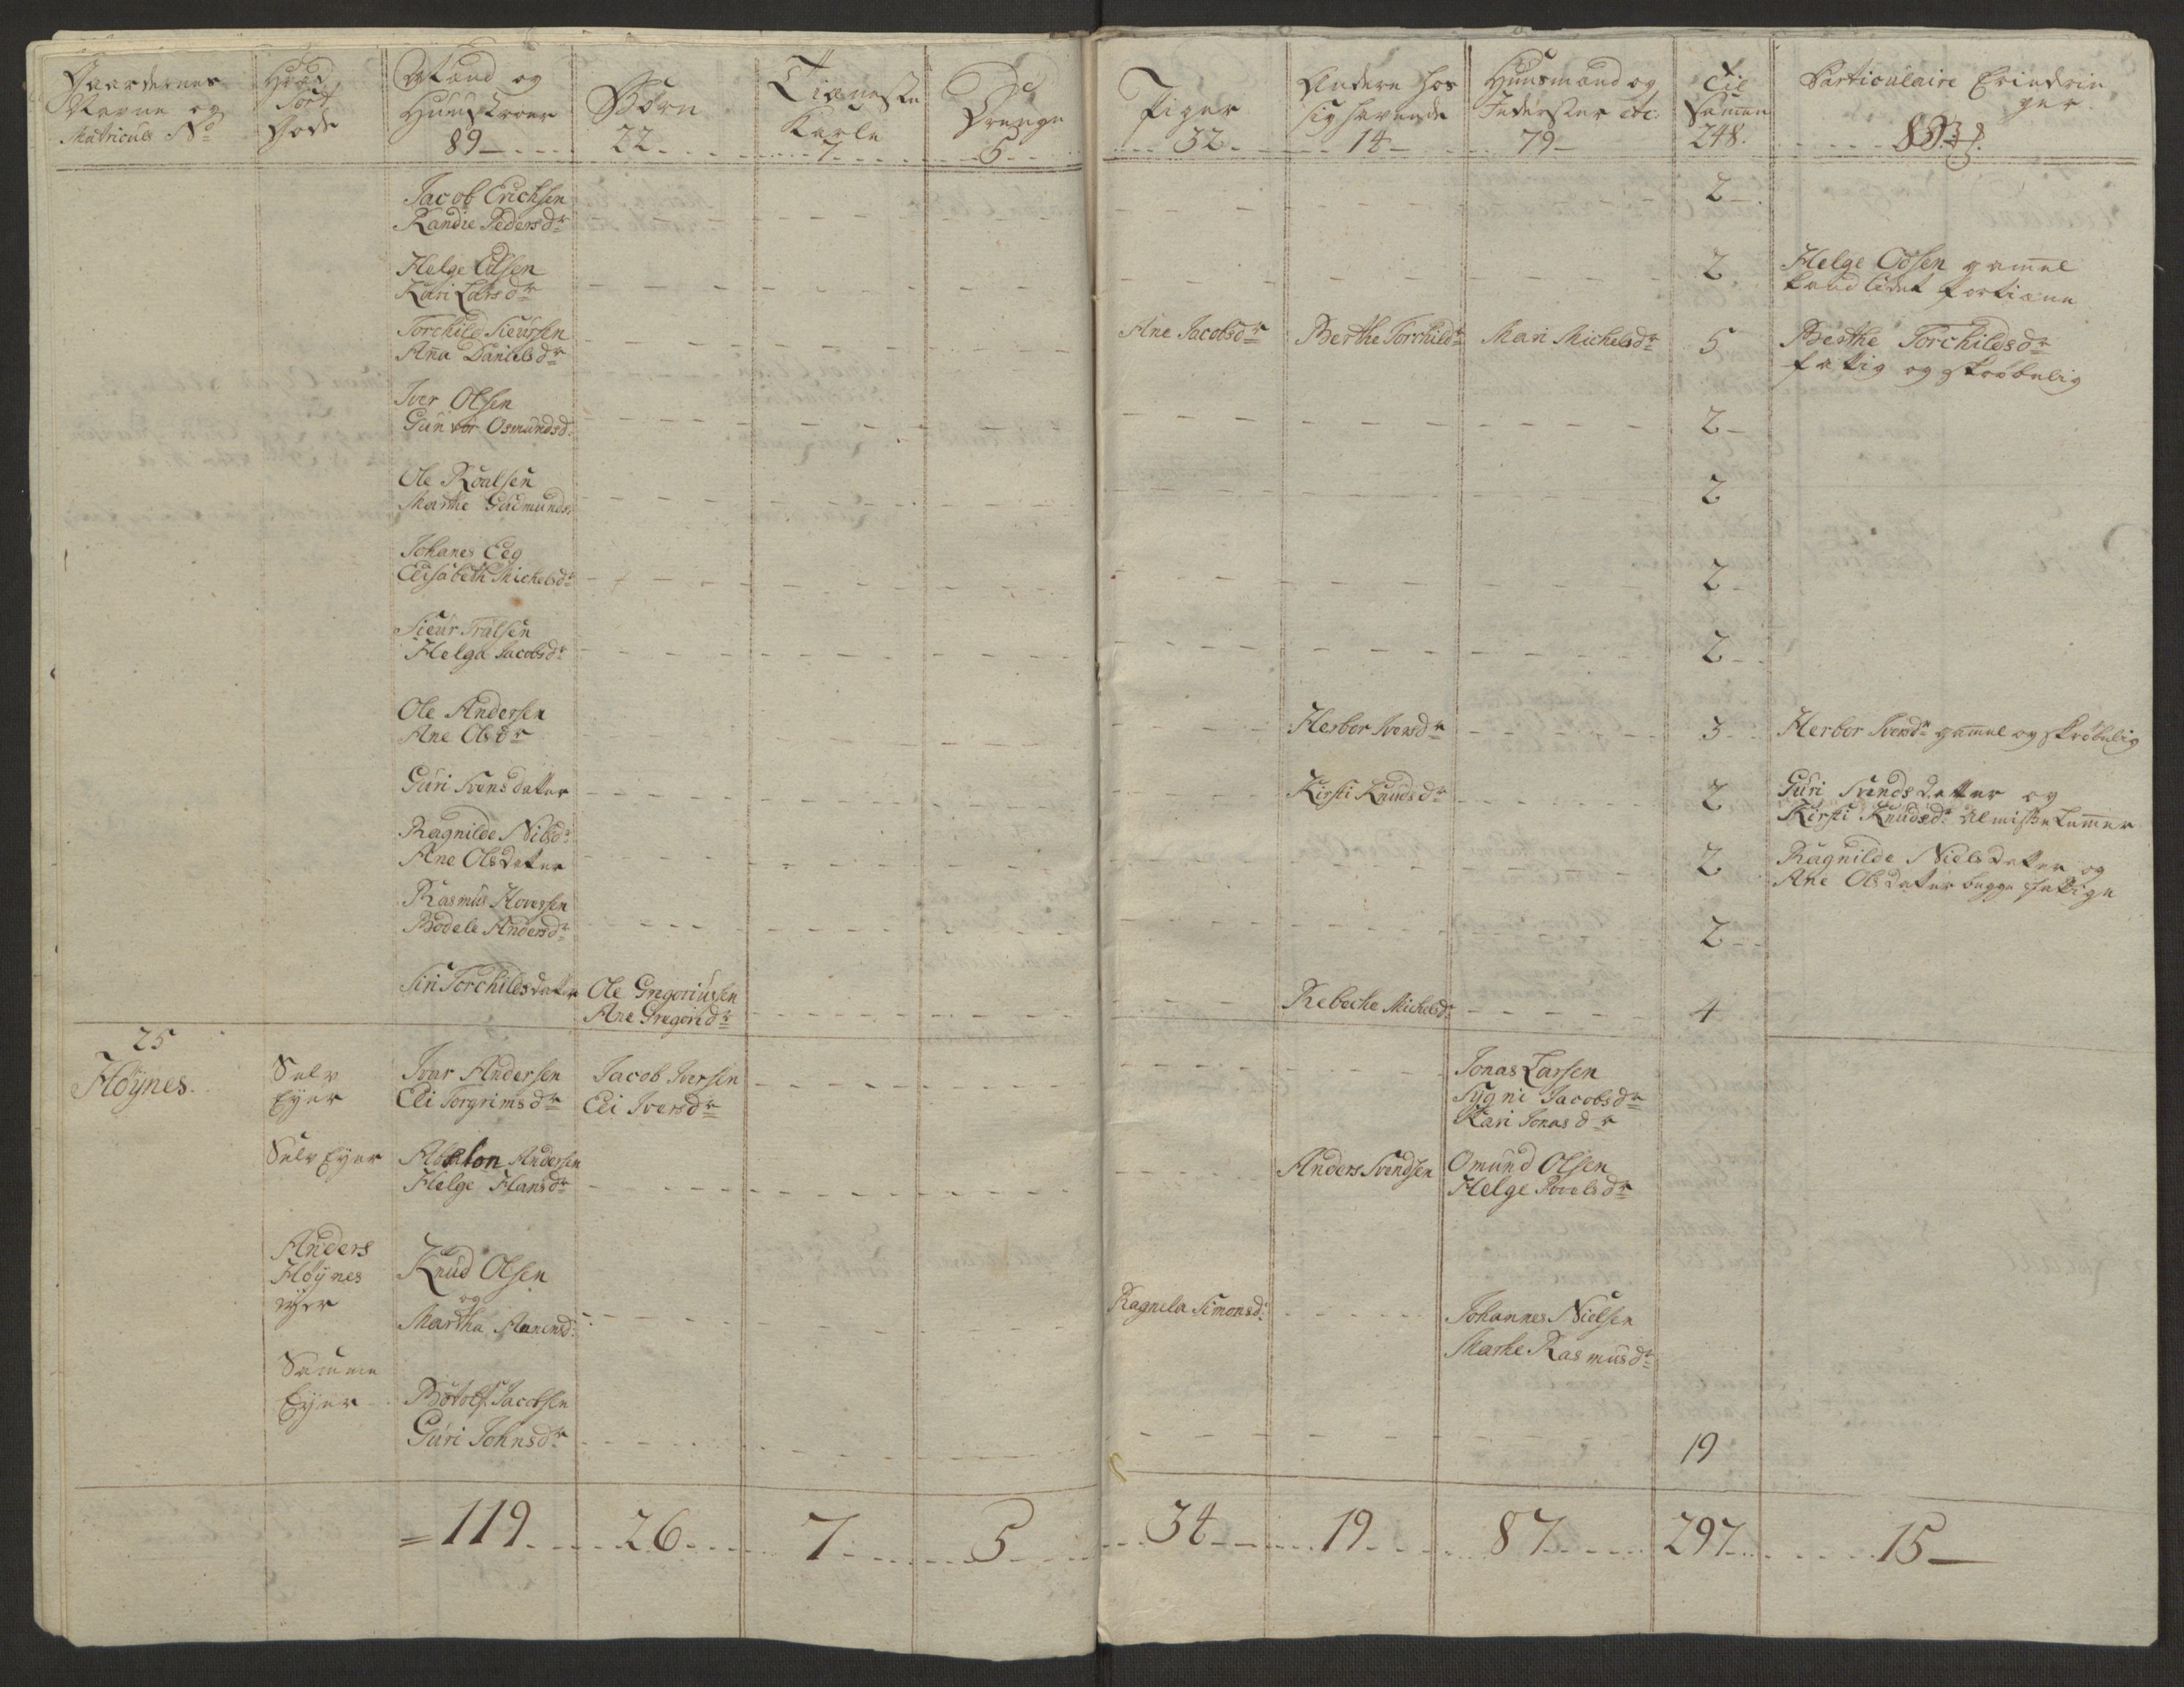 Gaardernes
Navne og
Matriculs No
Hvad
Jord
Gods
Mænd og
Huustroer
89
Børn
22
Tieneste
Karle
7
Drenge
5
Piger
32
Andere hos
sig havende
14
Huusmænd og
Inderster etc.
79
Til
Samen
248.
Particulaire Erindrin
ger.
Jacob Erichsen
Randie Pedersdr
2
Helge Odsen
Kari Larsdr
2
Helge Odsen gammel
Torchild Sieursen
Anna Danielsdr
Ane Jacobsdr
Berthe Torchildr
Mari Michelsdr
5
Berthe Torchildsdr
fattig og skrøbelig
Iver Olsen
Gunvor Osmundsd.
2
Ole Roalsen
Marthe Gudmunds.
2
Johanes Eeg
Elisabeth Michelsdr
2
Sieur Tralsen
Helga Jacobsdr
2
Ole Andersen
Ane Olsdr
Herbor Iversdr
3
Herbor Iversdr gammel og skrøbelig
Guri Svensdatter
Kirsti Knudsdr
2
Guri Svendsdatter og
Kirsti Knudsdr almisselemmer
Ragnilde Nilsdr
Ane Olsdatter
2
Ragnilde Nielsdatter og
Ane Olsdatter begge fattige
Rasmus Hoversen
Bodele Andersdr
2
Siri Torchildsdatter
Ole Gregoriussen
Ane Gregoridr
Rebecke Michelsdr
4
25
Høynes.
Selv
Eyer
Ivar Andersen
Eli Torgrimsdr
Jacob Iversen
Eli Iversdr
Jonas Larsen
Sygni Jacobsdr
Kari Jonasdr
Selv Eyer
Absalon Andersen
Helge Hansdr
Anders Svendsen
Omund Olsen
Helge Povelsdr
Anders
Høynes
eyer
Knud Olsen
og
Martha Monensd:
Ragnela Simonsd:
Johannes Nielsen
Marhe Rasmusdr
Samme
Eyer
Botolf Jacobsen
Guri Johnsdr
19
=119
26
7
5
34
19
87
297
15